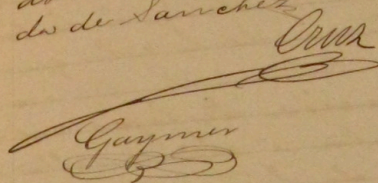 da de Sanchez
Cruz
Gaymer